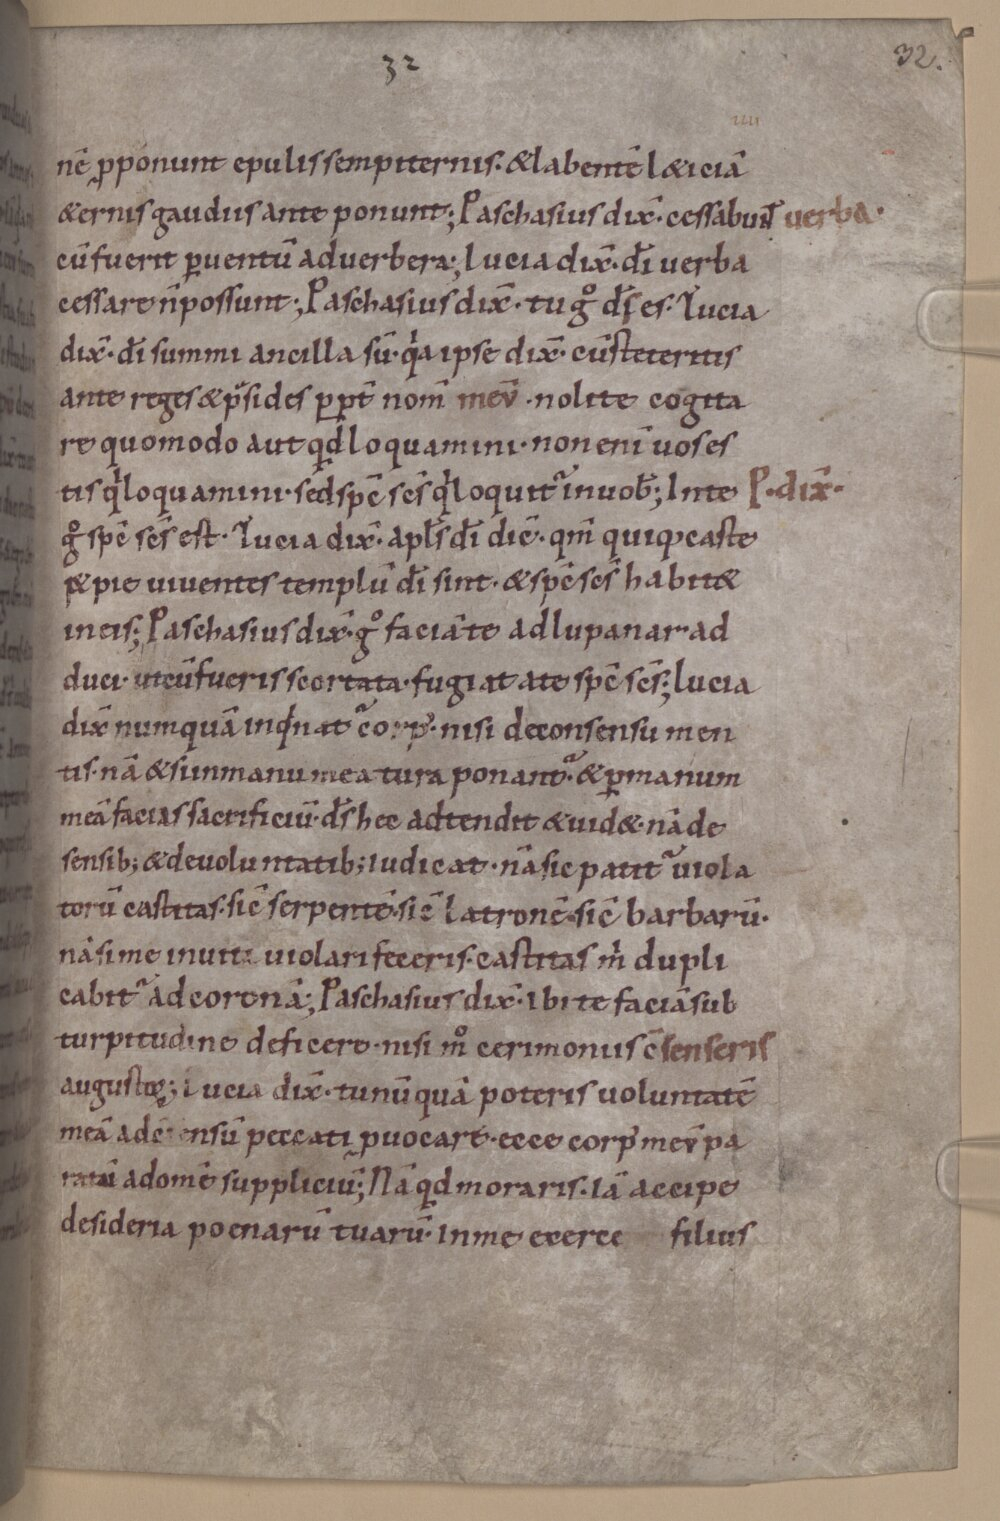 32
32.
ıııı
nē ꝓponunt epulis sempiternis. & labentē l&iciā
&ernis gaudiis ante ponunt; Paschasius dix̄. cessabunt verba.
cū fuerit ꝑuentū ad verbera; Lucia dix̄. dī verba
cessare n̄ possunt; Paschasius dix̄. tu gͦ dī es. Lucia
dix̄. dī summi ancilla sū. qͥa ipse dix̄. cū steteritis
ante reges & p̄sides ꝓpt̄ nom̄ meū. nolite cogita
re quomodo aut qd̄ loquamini. non enī uos es
tis qͥ loquamini. sed sp̄c sc̄s qͥ loquit᷑ in uob̄; Inte P. dix̄.
gͦ sp̄c sc̄s est. Lucia dix̄. apl̄s dī dic̄. qm̄ quiq; caste
& pie uiuentes templū dī sint. & sp̄c sc̄s habit&
in eis; Paschasius dix̄. gͦ faciā te ad lupanar ad
duci. ut cū fueris scortata. fugiat a te sp̄c sc̄s; Lucia
dix̄ numquā inqͥnat᷑ corp᷒. nisi de consensu men
tis. nā & si in manu mea tura ponant᷑. & ꝑ manum
meā facias sacrificiū. ds̄ hec adtendit & uid&. nā de
sensib; & de voluntatib; iudicat. nā sic patit᷑ uiola
torū castitas. sic̄ serpentē. sic̄ latronē. sic̄ barbarū.
nā si me inuitā uiolari feceris. castitas mͥ dupli
cabit᷑ ad coronā; Paschasius dix̄. Ibi te faciā sub
turpitudine deficere. nisi mͦ cerimoniis c̄senseris
augustorum; Lucia dix̄. tu nūquā poteris uoluntatē
meā ad c̄sensū peccati ꝓuocare. ecce corp᷒ meū pa
ratū ad omē suppliciū; Nā qd̄ moraris. Iā accipe
desideria poenarū tuarū. In me exerce filius